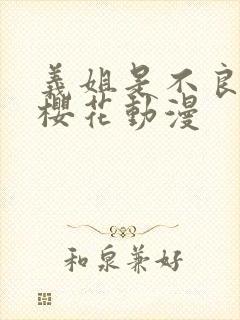 義姐是不良
櫻花動漫
和泉兼好